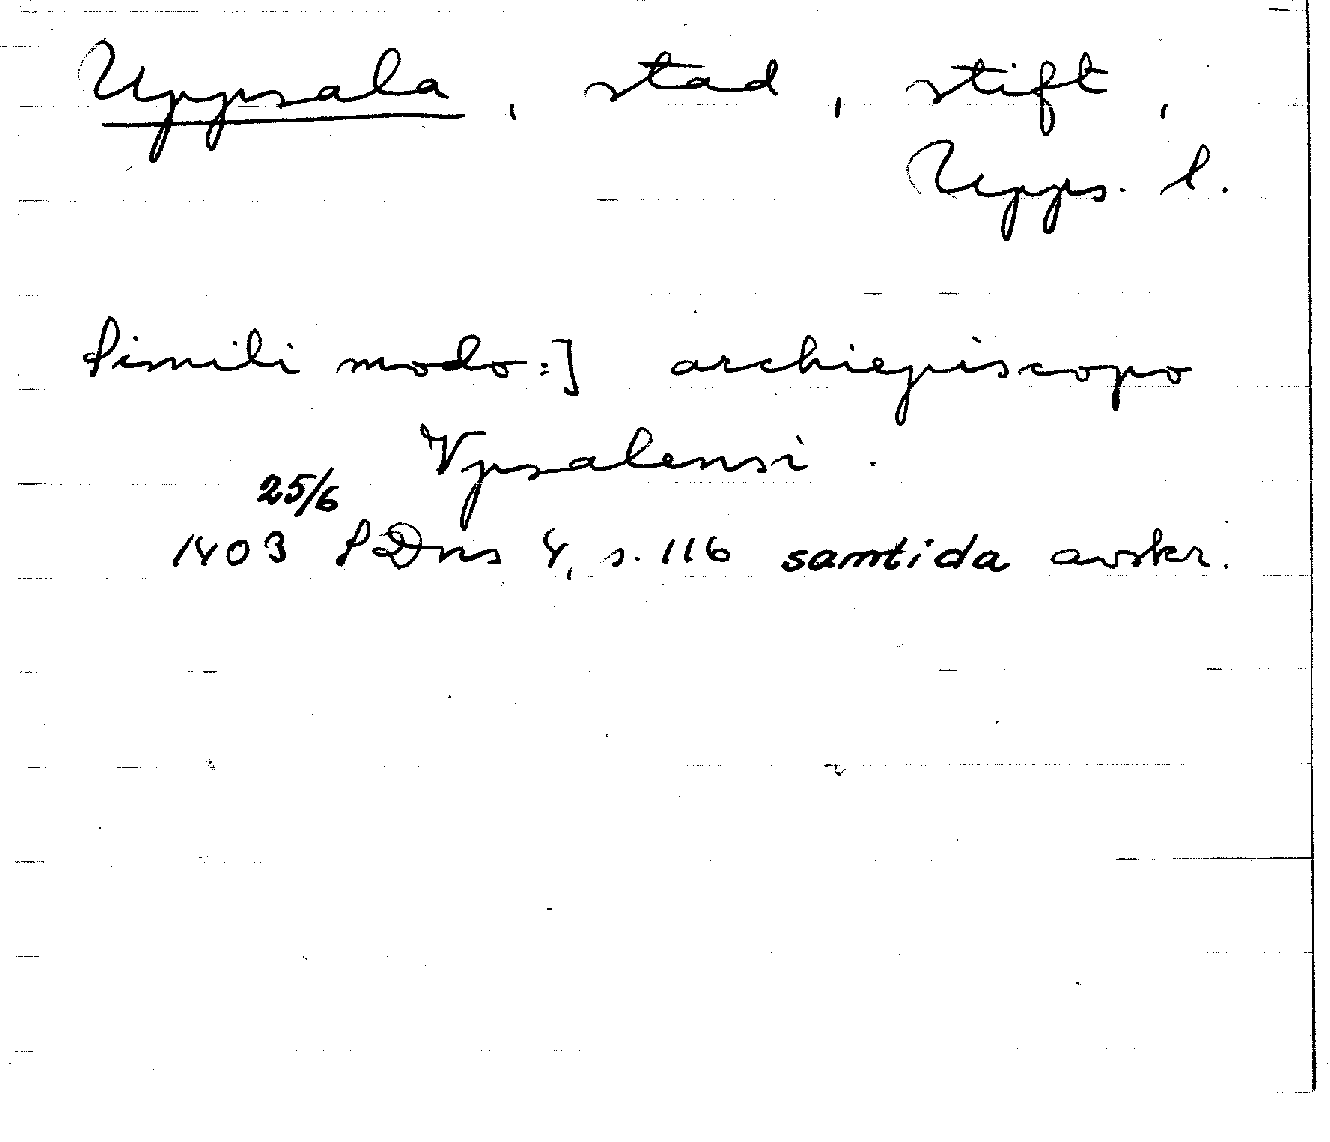 Uppsala, stad, stift,
Upps. l.
Simili modo:] archiepiscopo
Vpsalensi.
25/6
1403 SDns 4, s. 116 samtida avskr.